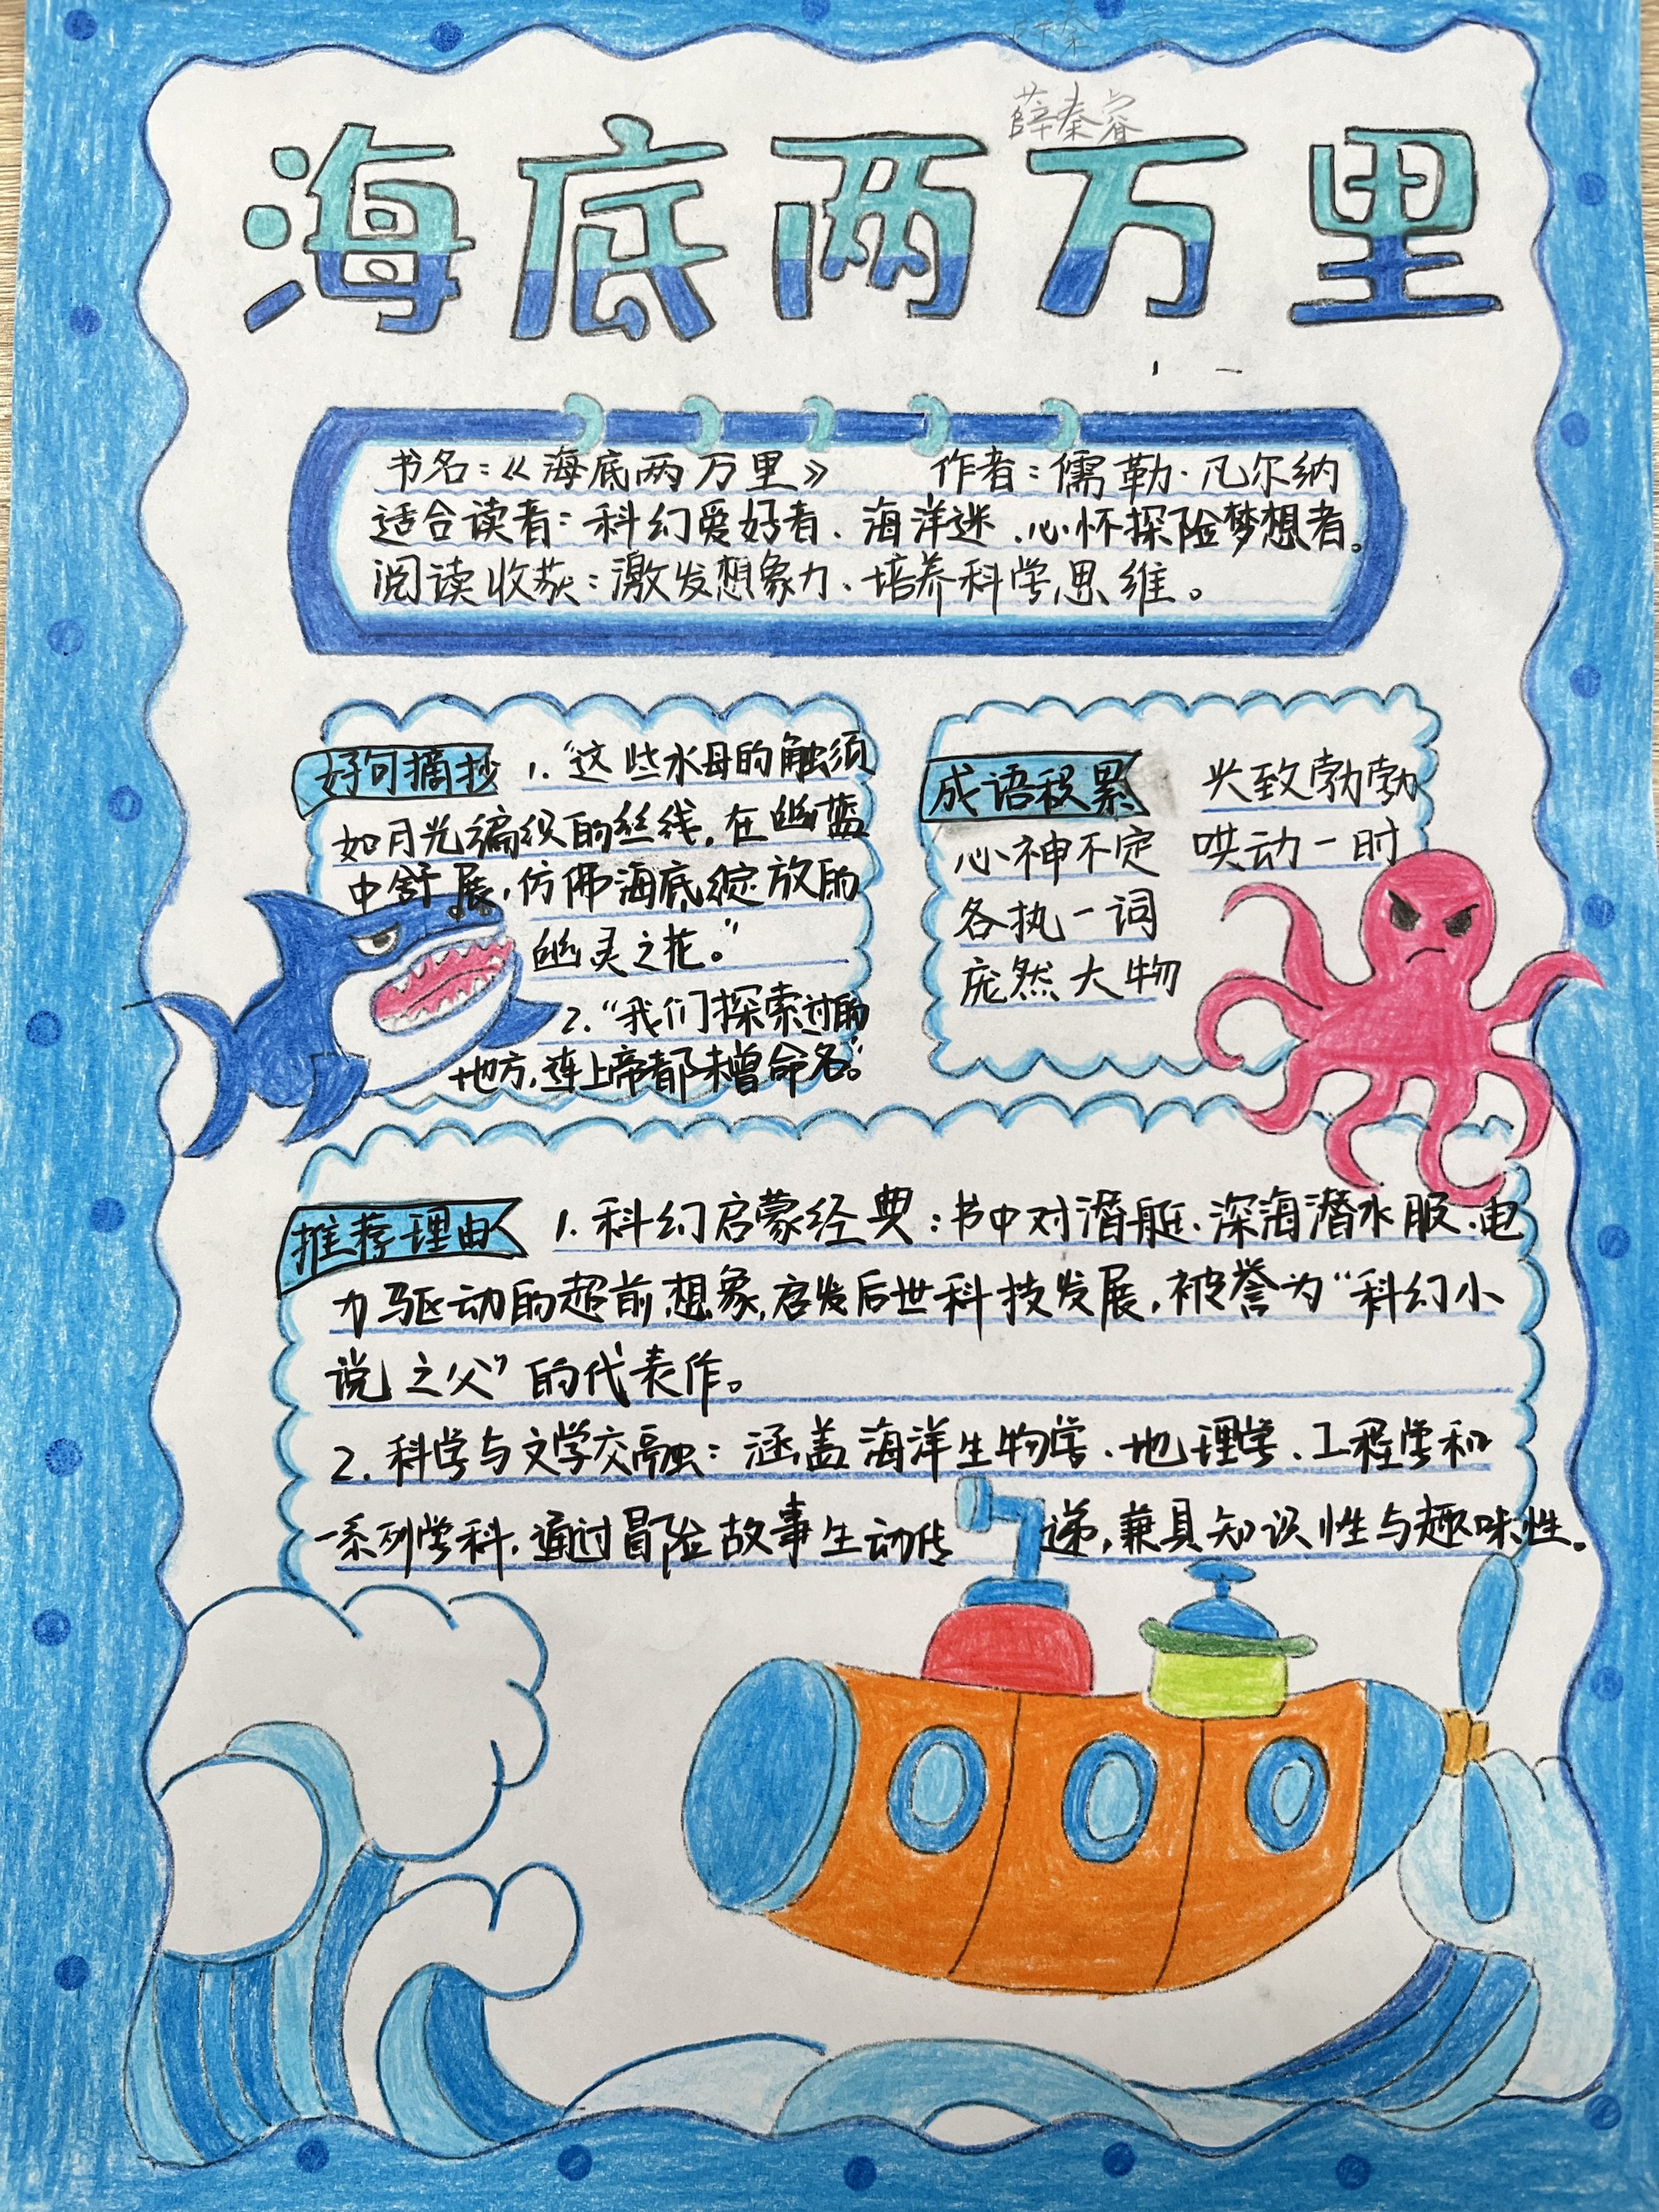 薛秦睿
海底两万里
书名：《海底两万里》 作者：儒勒·凡尔纳
适合读者：科幻爱好者、海洋迷、心怀探险梦想者。
阅读收获：激发想象力、培养科学思维。
好句摘抄 1.“这些水母的触须
如月光编织的丝线，在幽蓝
中舒展，仿佛海底绽放的
幽灵之花。”
2.“我们探索过的
地方，连上帝都未曾命名。”
成语积累 兴致勃勃
心神不定 哄动一时
各执一词
庞然大物
推荐理由 1.科幻启蒙经典：书中对潜艇、深海潜水服、电
力驱动的超前想象，启发后世科技发展，被誉为“科幻小
说之父”的代表作。
2.科学与文学交融：涵盖海洋生物学、地理学、工程学和
一系列学科，通过冒险故事生动传递，兼具知识性与趣味性。